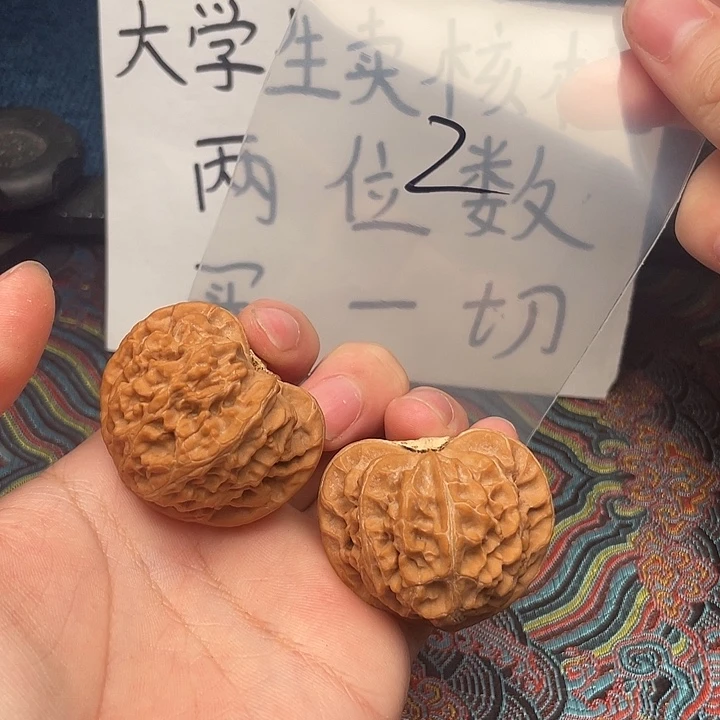 大学生卖核桃
2
两位数
买一切